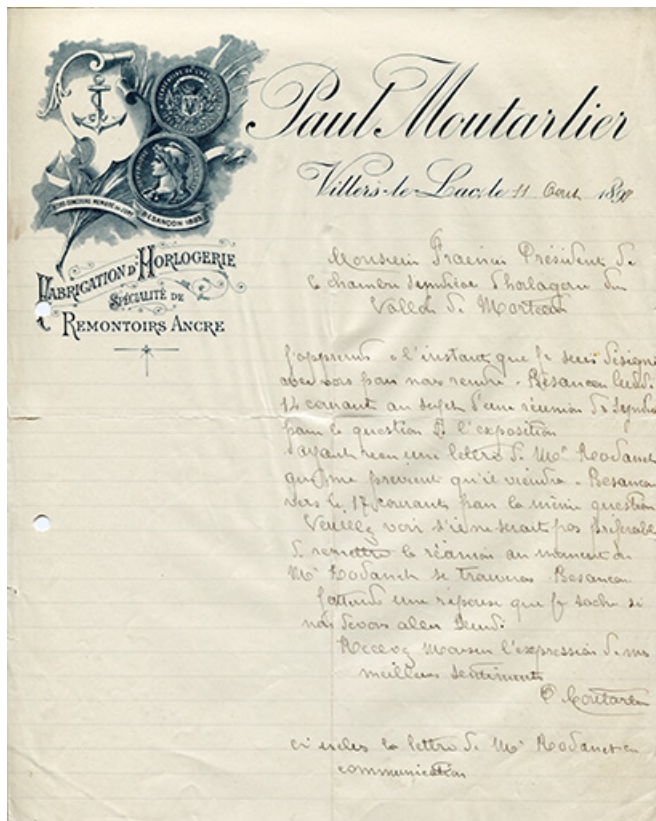 Paul Moutarlier
Villers-le-Lac, le 11 Aout 189
BESANÇON 1893
FABRICATION D'HORLOGERIE
SPÉCIALITÉ DE
REMONTOIRS ANCRE
Monsieur Président de
la chambre syndicale d'horlogerie du
Vallon de Morteau
J'apprends à l'instant que je suis désigné
avec vous pour nous rendre à Besançon lundi
14 courant au sujet d'une réunion de
pour la question de l'exposition
ayant reçu une lettre de Mr Rodanet
qui me previent qu'il viendra à Besançon
vers le 17 courant pour la même question
Veuillez voir s'il ne serait pas préférable
de remettre la réunion au moment où
Mr Rodanet se trouvera à Besançon
J'attends une réponse que je sache si
nous devons aller
Recevez Monsieur l'expression de mes
meilleurs sentiments
P Moutarlier
ci inclus la lettre de Mr Rodanet en
communication